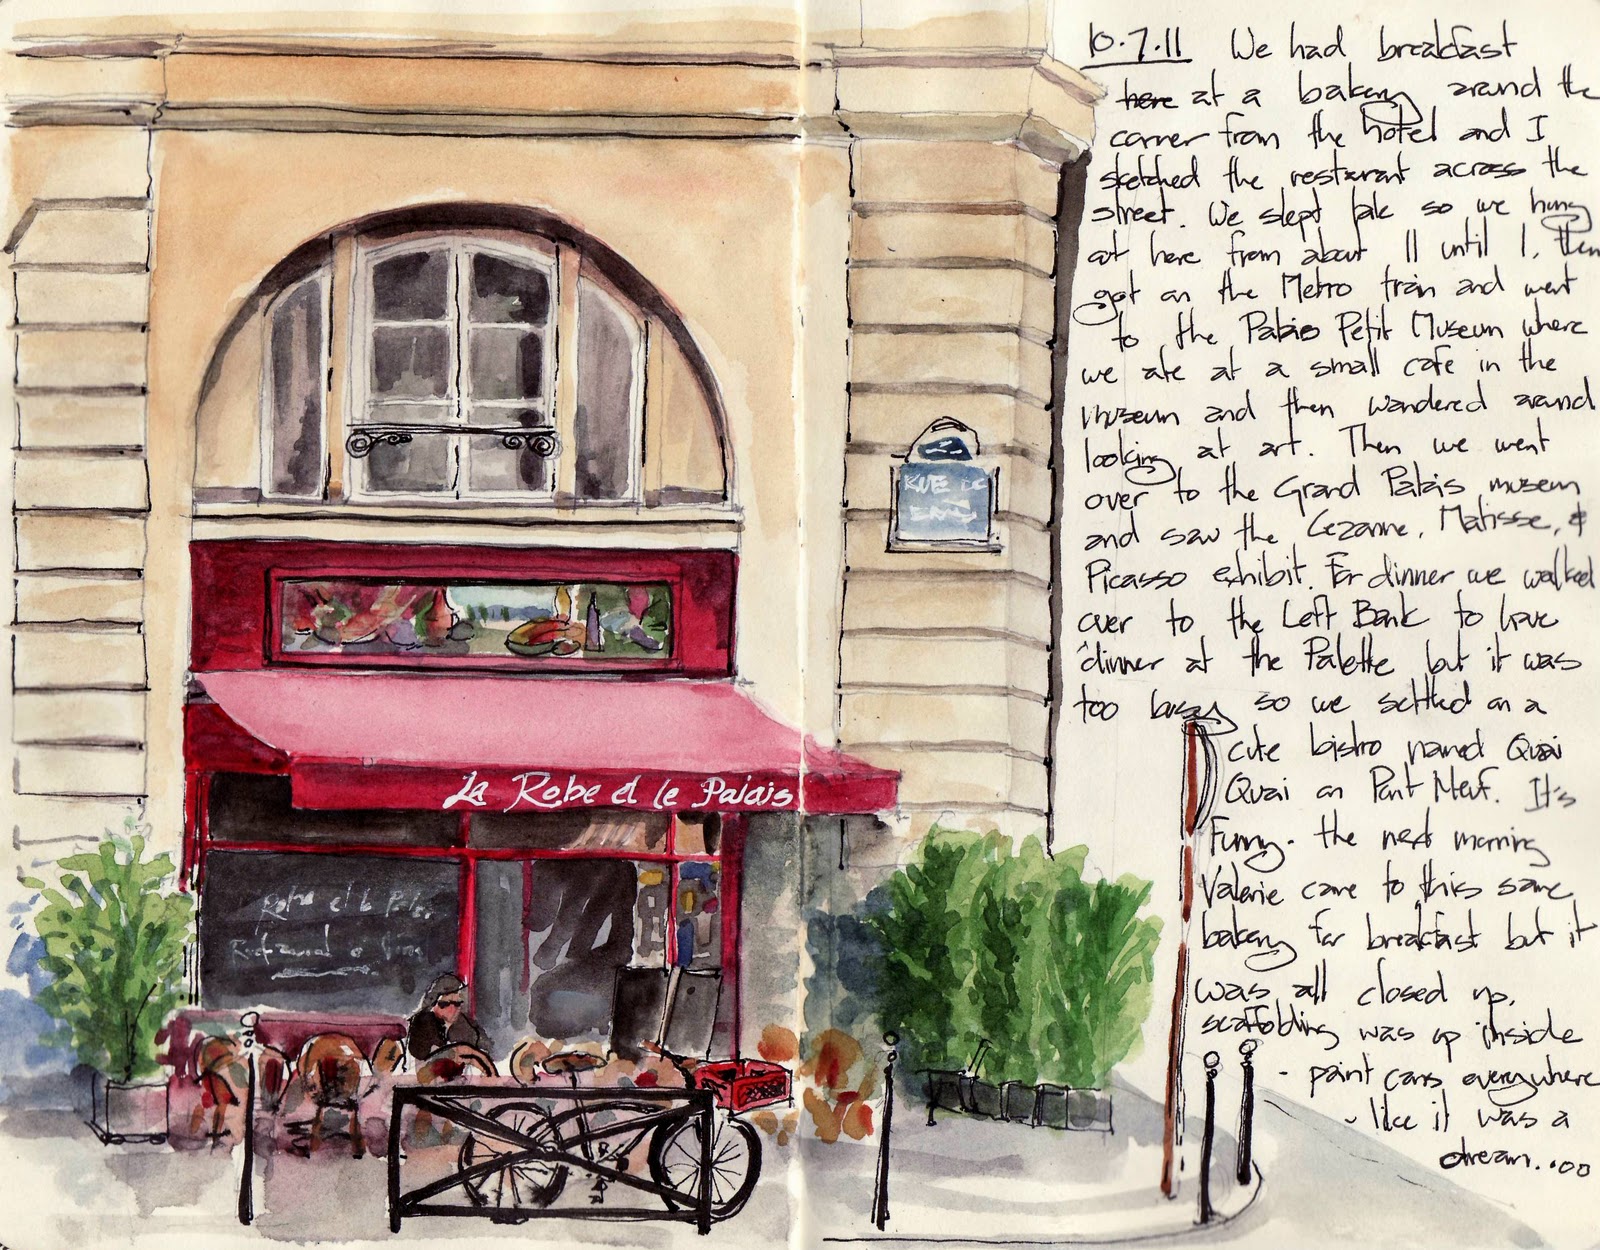 RUE DE
La Robe et le Palais
Robe et le Palais
10.7.11 We had breakfast
here at a bakery around the
corner from the hotel and I
sketched the restaurant across the
street. We slept late so we hung
out here from about 11 until 1, then
got on the Metro train and went
to the Palais Petit Museum where
we ate at a small cafe in the
museum and then wandered around
looking at art. Then we went
over to the Grand Palais museum
and saw the Cezanne, Matisse, &
Picasso exhibit. For dinner we walked
over to the Left Bank to have
dinner at the Palette but it was
too busy so we settled on a
cute bistro named Quai
Quai on Pont Neuf. It's
Funny - the next morning
Valerie came to this same
bakery for breakfast but it
was all closed up,
scaffolding was up inside
- paint cans everywhere
- like it was a
dream...oo